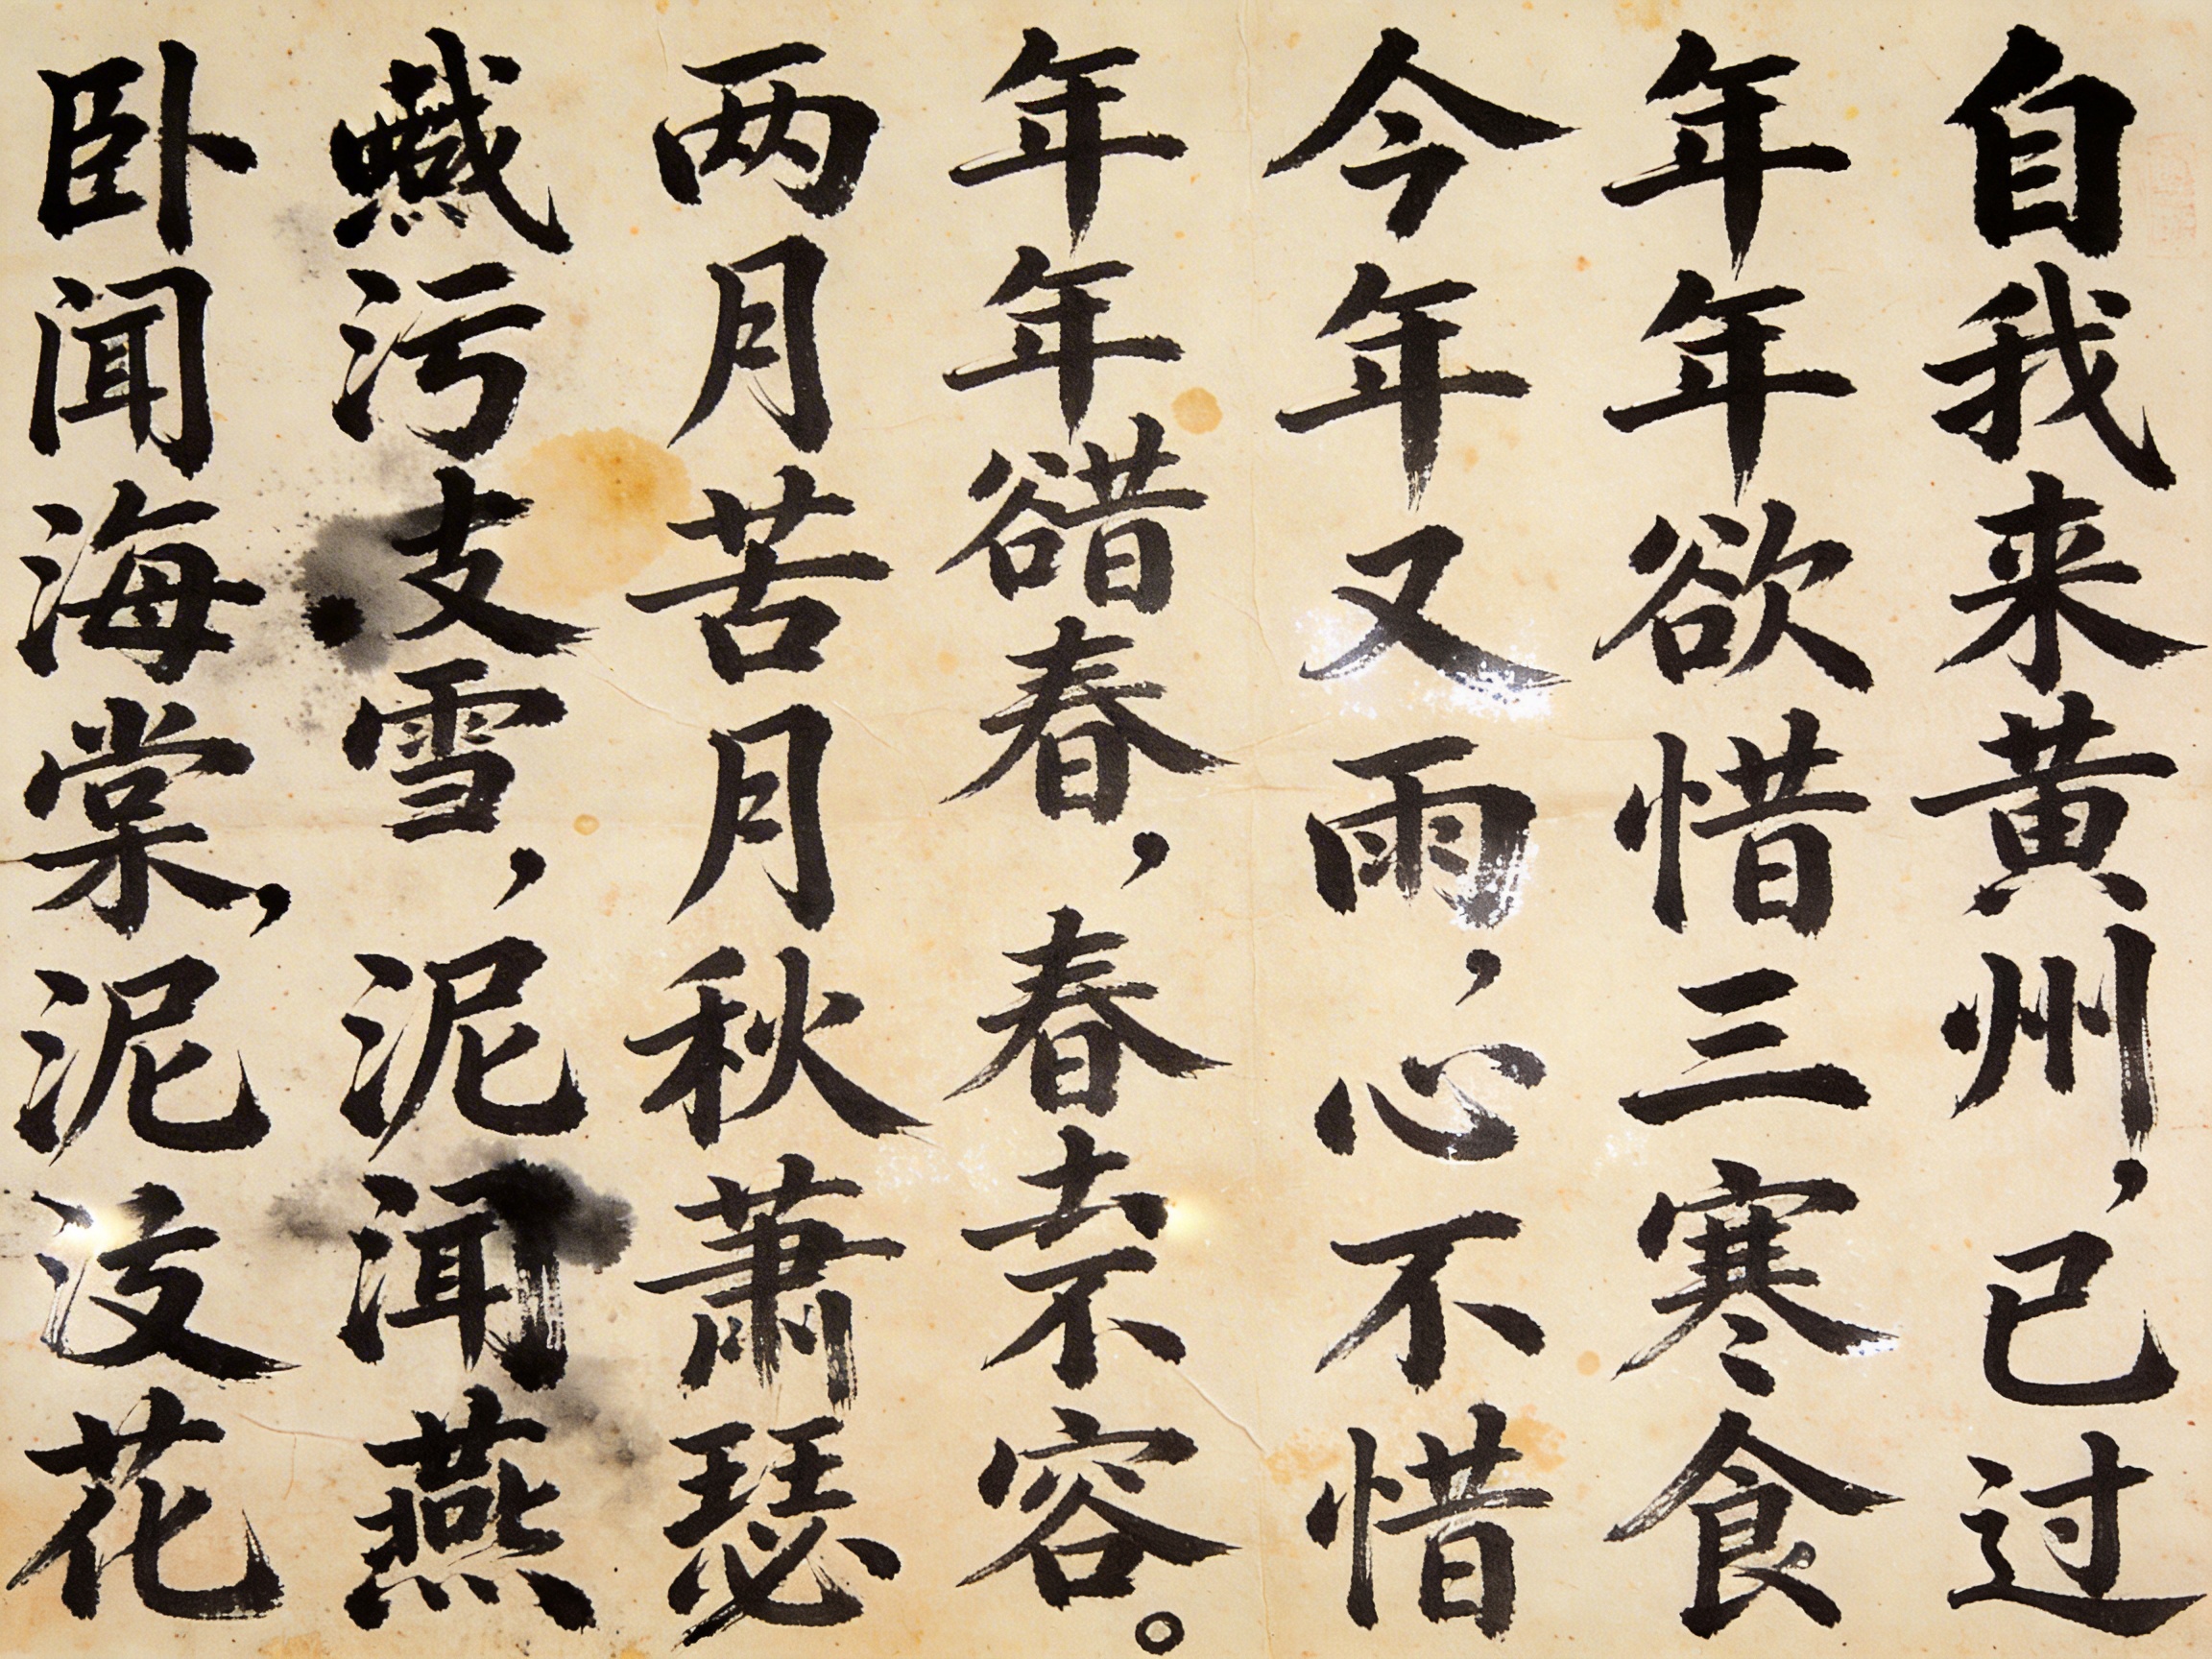 自我来黄州，已过
年年欲惜三寒食
今年又雨，心不惜
年年春，春去不容。
两月苦月秋萧瑟
污支雪，泥燕
卧闻海棠，泥花